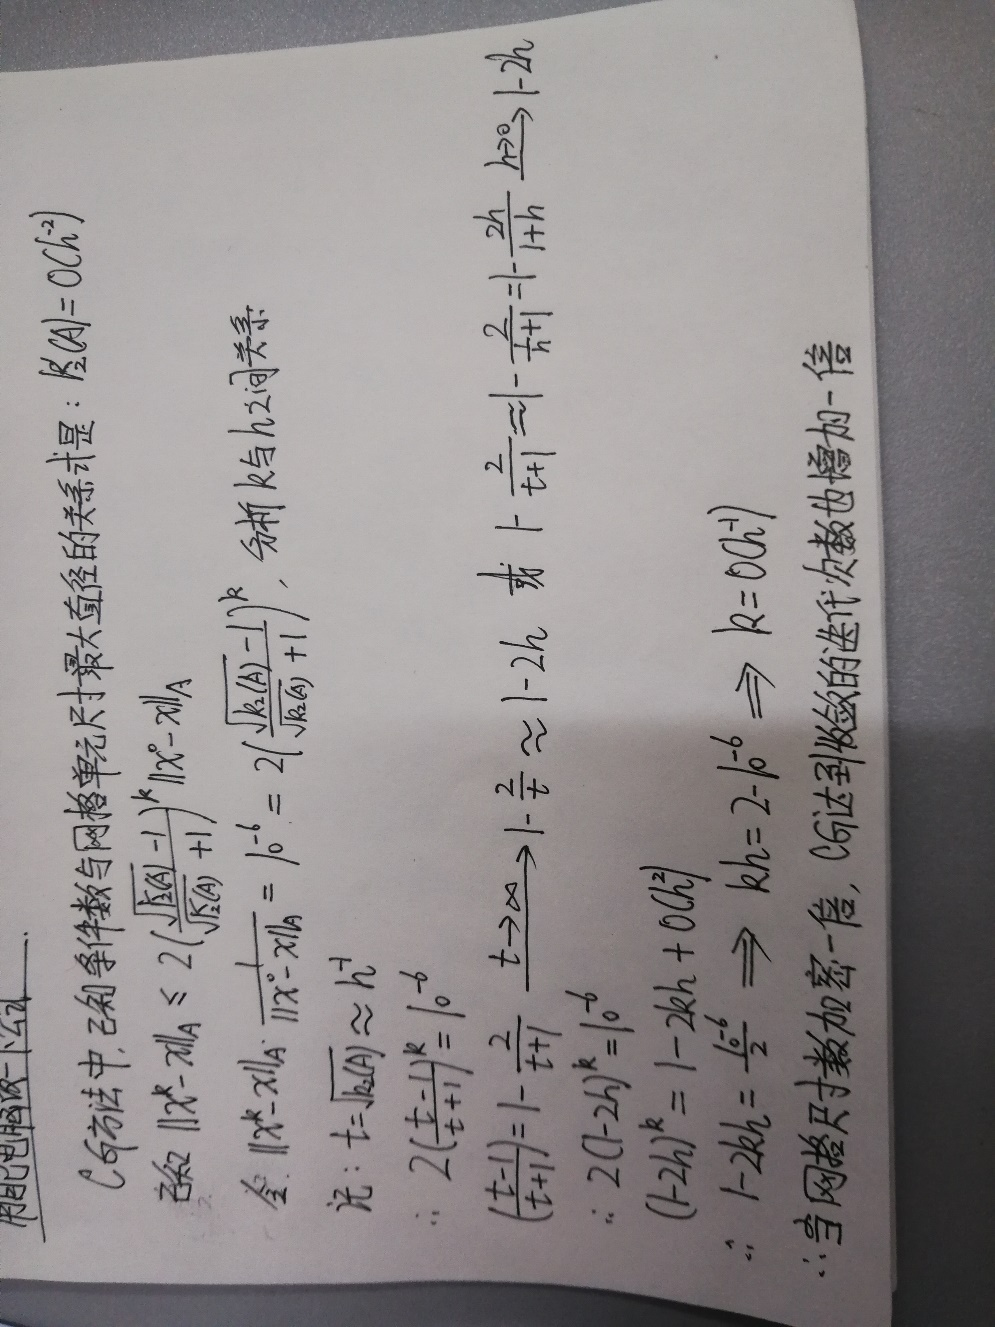 用自己电脑做一下公式
CG方法中,已知条件数与网格单元尺寸最大直径的关系式是:K₂(A)=O(h⁻²)
已知 ||xᵏ-x||_A ≤ 2(√K₂(A) -1 / √K₂(A) +1)ᵏ ||x⁰-x||_A
令 ||xᵏ-x||_A · 1/||x⁰-x||_A = 10⁻⁶ = 2(√k₂(A) -1 / √k₂(A) +1)ᵏ, 分析k与h之间关系
记: t=√k₂(A) ≈ h⁻¹
∴ 2(t-1 / t+1)ᵏ = 10⁻⁶
(t-1 / t+1) = 1 - 2/(t+1) —t→∞→ 1 - 2/t ≈ 1-2h 或 1 - 2/(t+1) ≈ 1 - 2/(1/h +1) = 1 - 2h/(1+h) —h→0→ 1-2h
∴ 2(1-2h)ᵏ = 10⁻⁶
(1-2h)ᵏ = 1-2kh+O(h²)
∴ 1-2kh = 10⁻⁶/2 ⟹ kh = 2-10⁻⁶ ⟹ k = O(h⁻¹)
∴ 当网格尺寸数加密一倍, CG达到收敛的迭代次数也增加一倍